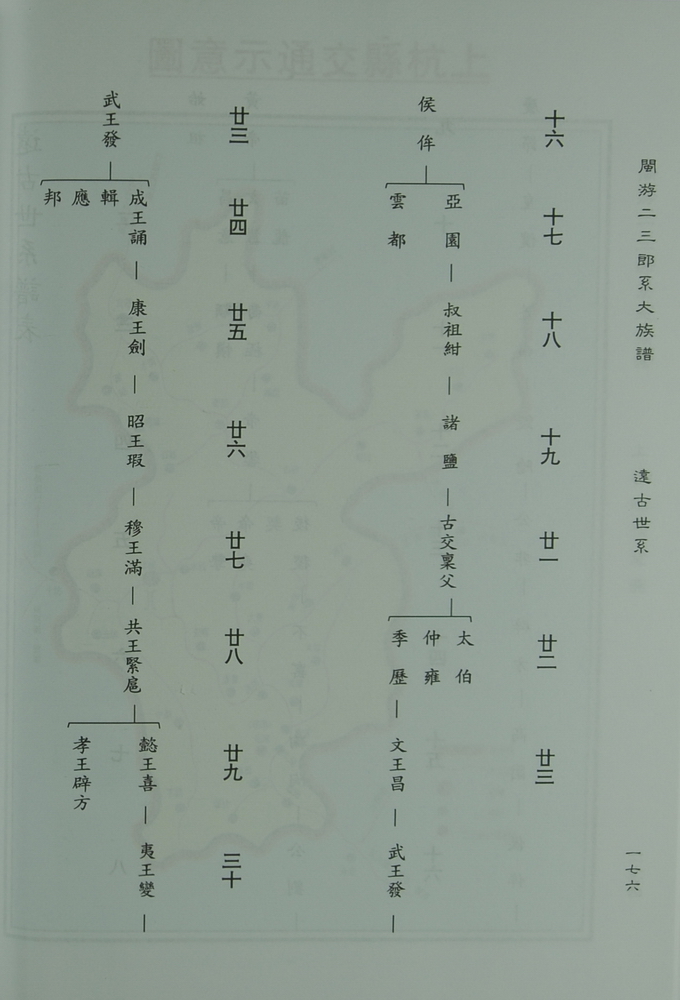 閩游二三郎系大族譜
遠古世系
一七六
十六
十七
十八
十九
廿一
廿二
廿三
侯侔
亞園
雲都
叔祖紺
諸鹽
古交稟父
太伯
仲雍
季歷
文王昌
武王發
廿三
廿四
廿五
廿六
廿七
廿八
廿九
三十
武王發
成王誦
輯
應
邦
康王劍
昭王瑕
穆王滿
共王緊扈
懿王喜
孝王辟方
夷王變
上杭縣交通示意圖
遠古世系譜表